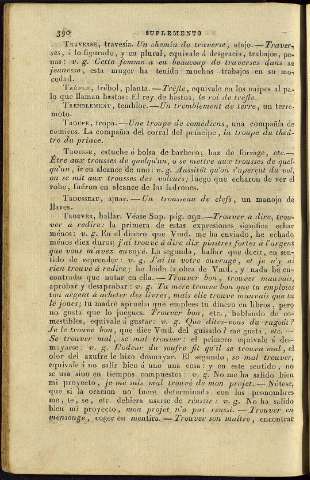 390 SUPLEMENTO
TRAVESSE, travesia. Un chemin de traverse, atajo. — Traver-
ses, à lo figurado, y en plural, equivale á desgracia, trabajos, pe-
nas: v. g. Cette femme a eu beaucoup de traverses dans sa
jeunesse, esta muger ha tenido muchos trabajos en su mo-
cedad.
TRÈFLE, trébol, planta. — Trèfle, equivale en los naipes al pa-
lo que llaman bastos: El rey de bastos, le roi de trèfle.
TREMBLEMENT, temblor. — Un tremblement de terre, un terre-
moto.
TROUPE, tropa. — Une troupe de comédiens, una compañía de
cómicos. La compañía del corral del principe, la troupe du théâ-
tre du prince.
TROUSSE, estuche ó bolsa de barbero; haz de forrage, etc. —
Être aux trousses de quelqu'un, o se mettre aux trousses de quel-
qu'un, ir en alcance de uno: v. g. Aussitôt qu'on s'aperçut du vol,
on se mit aux trousses des voleurs, luego que echaron de ver el
robo, fueron en alcance de los ladrones.
TROUSSEAU, ajuar. — Un trousseau de clefs, un manojo de
llaves.
TROUVER, hallar. Véase Sup. pág. 290. — Trouver à dire, trou-
ver à redire: la primera de estas expresiones significa echar
ménos: v. g. En el dinero que Vmd. me ha enviado, he echado
ménos diez duros, j'ai trouvé à dire dix piastres fortes à l'argent
que vous m'avez envoyé. La segunda, hallar que decir, en sen-
tido de reprender: v. g. J'ai lu votre ouvrage, et je n'y ai
rien trouvé à redire; he leido la obra de Vmd., y nada he en-
contrado que notar en ella. — Trouver bon, trouver mauvais,
aprobar y desaprobar: v. g. Ta mère trouve bon que tu emploies
ton argent à acheter des livres, mais elle trouve mauvais que tu
le joues; tu madre aprueba que emplees tu dinero en libros, pero
no gusta que lo juegues. Trouver bon, etc., hablando de co-
mestibles, equivale á gustar: v. g. Que dites-vous du ragoût?
Je le trouve bon, que dice Vmd. del guisado? me gusta, etc. —
Se trouver mal, se mal trouver: el primero equivale á des-
mayarse: v. g. L'odeur du soufre fit qu'il se trouva mal, el
olor del azufre le hizo desmayar. El segundo, se mal trouver,
equivale á no salir bien á uno una cosa: y en este sentido, no
se usa sino en tiempos compuestos: v. g. No me ha salido bien
mi proyecto, je me suis mal trouvé de mon projet. — Nótese,
que si la oracion no fuese determinada con los pronombres
me, te, se, etc. debiera usarse de réussir: v. g. No ha salido
bien mi proyecto, mon projet n'a pas réussi. — Trouver en
mensonge, coger en mentira. — Trouver son maître, encontrar